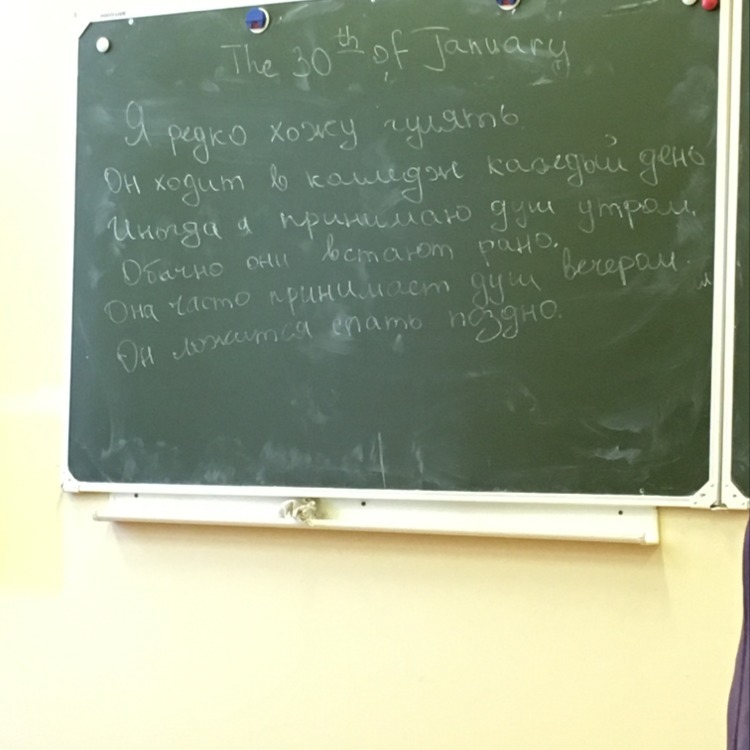 The 30th of January
Я редко хожу гулять
Он ходит в колледж каждый день
Иногда я принимаю душ утром.
Обычно они встают рано.
Она часто принимает душ вечером.
Он ложится спать поздно.